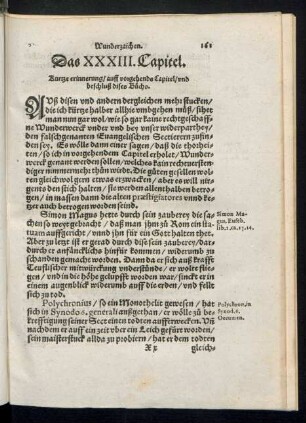 Wunderzaichen. 161
Das XXXIII. Capitel.
Kurtze erinnerung/ auff vorgehende Capitel/ vnd
beschluß dises Bůchs.
AUß disen vnd andern dergleichen mehr stucken/
die ich kürtze halben allhie vmbgehen můß/ sihet
man nun gar wol/ wie so gar kaine rechtgeschaff-
ne Wunderwerck vnder vnd bey vnser widerparthey/
den falschgenanten Euangelischen Sectierern zufin-
den sey. Es wölle dann einer sagen/ daß die thorhei-
ten/ so ich in vorgehendem Capitel erholet/ Wunder-
werck genant werden sollen/ welches kain rechtuerstendiger
nimmermehr thůn würde. Die gůten gesellen wol-
len gleichwol gern etwas erzwacken/ aber es will nir-
gents den stich halten/ sie werden allenthalben darob
erdapt/ so sie doch andere statliche patriotten vnnd ke-
tzer auch betrogen haben.
Simon Magus hette durch sein zauberey die sa-
chen so weyt gebracht/ daß man jhm zů Rom ein sta-
tuam auffgericht/ vnd jhn für ein Gott halten thet.
Aber zů letzt ist er grad durch dise zauberey/ dar-
durch er anfäncklichs hinfür kommen/ widerumb zů
schanden gemacht worden. Dann da er sich auß krafft
Teuflischer mitwürckung vnderstůnde/ er wölte flie-
gen/ vnd in die höhe gelupfft worden war/ sincket er in
einem augenblick widerumb auff die erden/ vnd fellet
sich zů tod.
Simon Ma-
gus. Euseb.
lib.2.ca.13.14.
Polychronius/ so ein Monothelit gewesen/ hat
sich in Synodo 6. generali außgethan/ er wölle zů be-
krefftigung seiner Sect einen todten aufferwecken. Vnd
nachdem er auff ein zeyt vber ein Leich gefürt worden/
sein maisterstuck allda zů probiern/ hat er dem todten
Polychron. in
Synod. 6.
Oecumen.
X gleich-